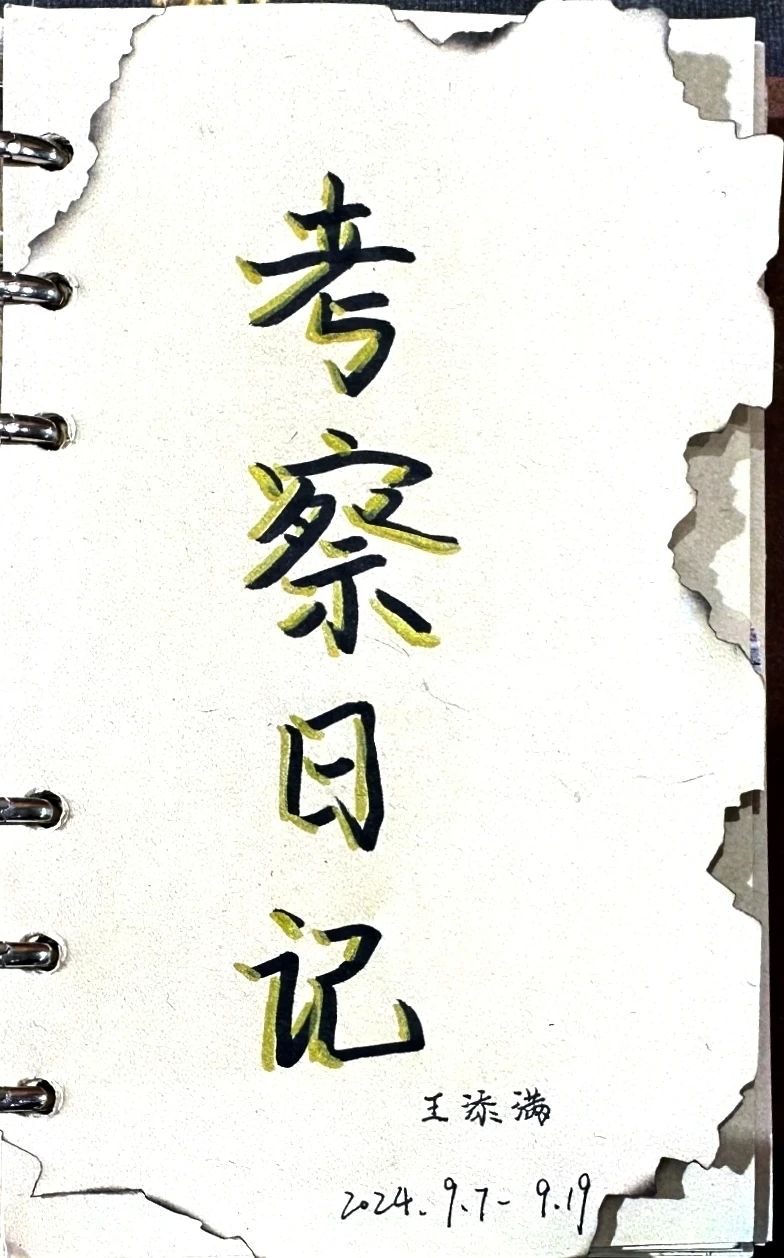 考察日记
王添满
2024.9.7-9.19